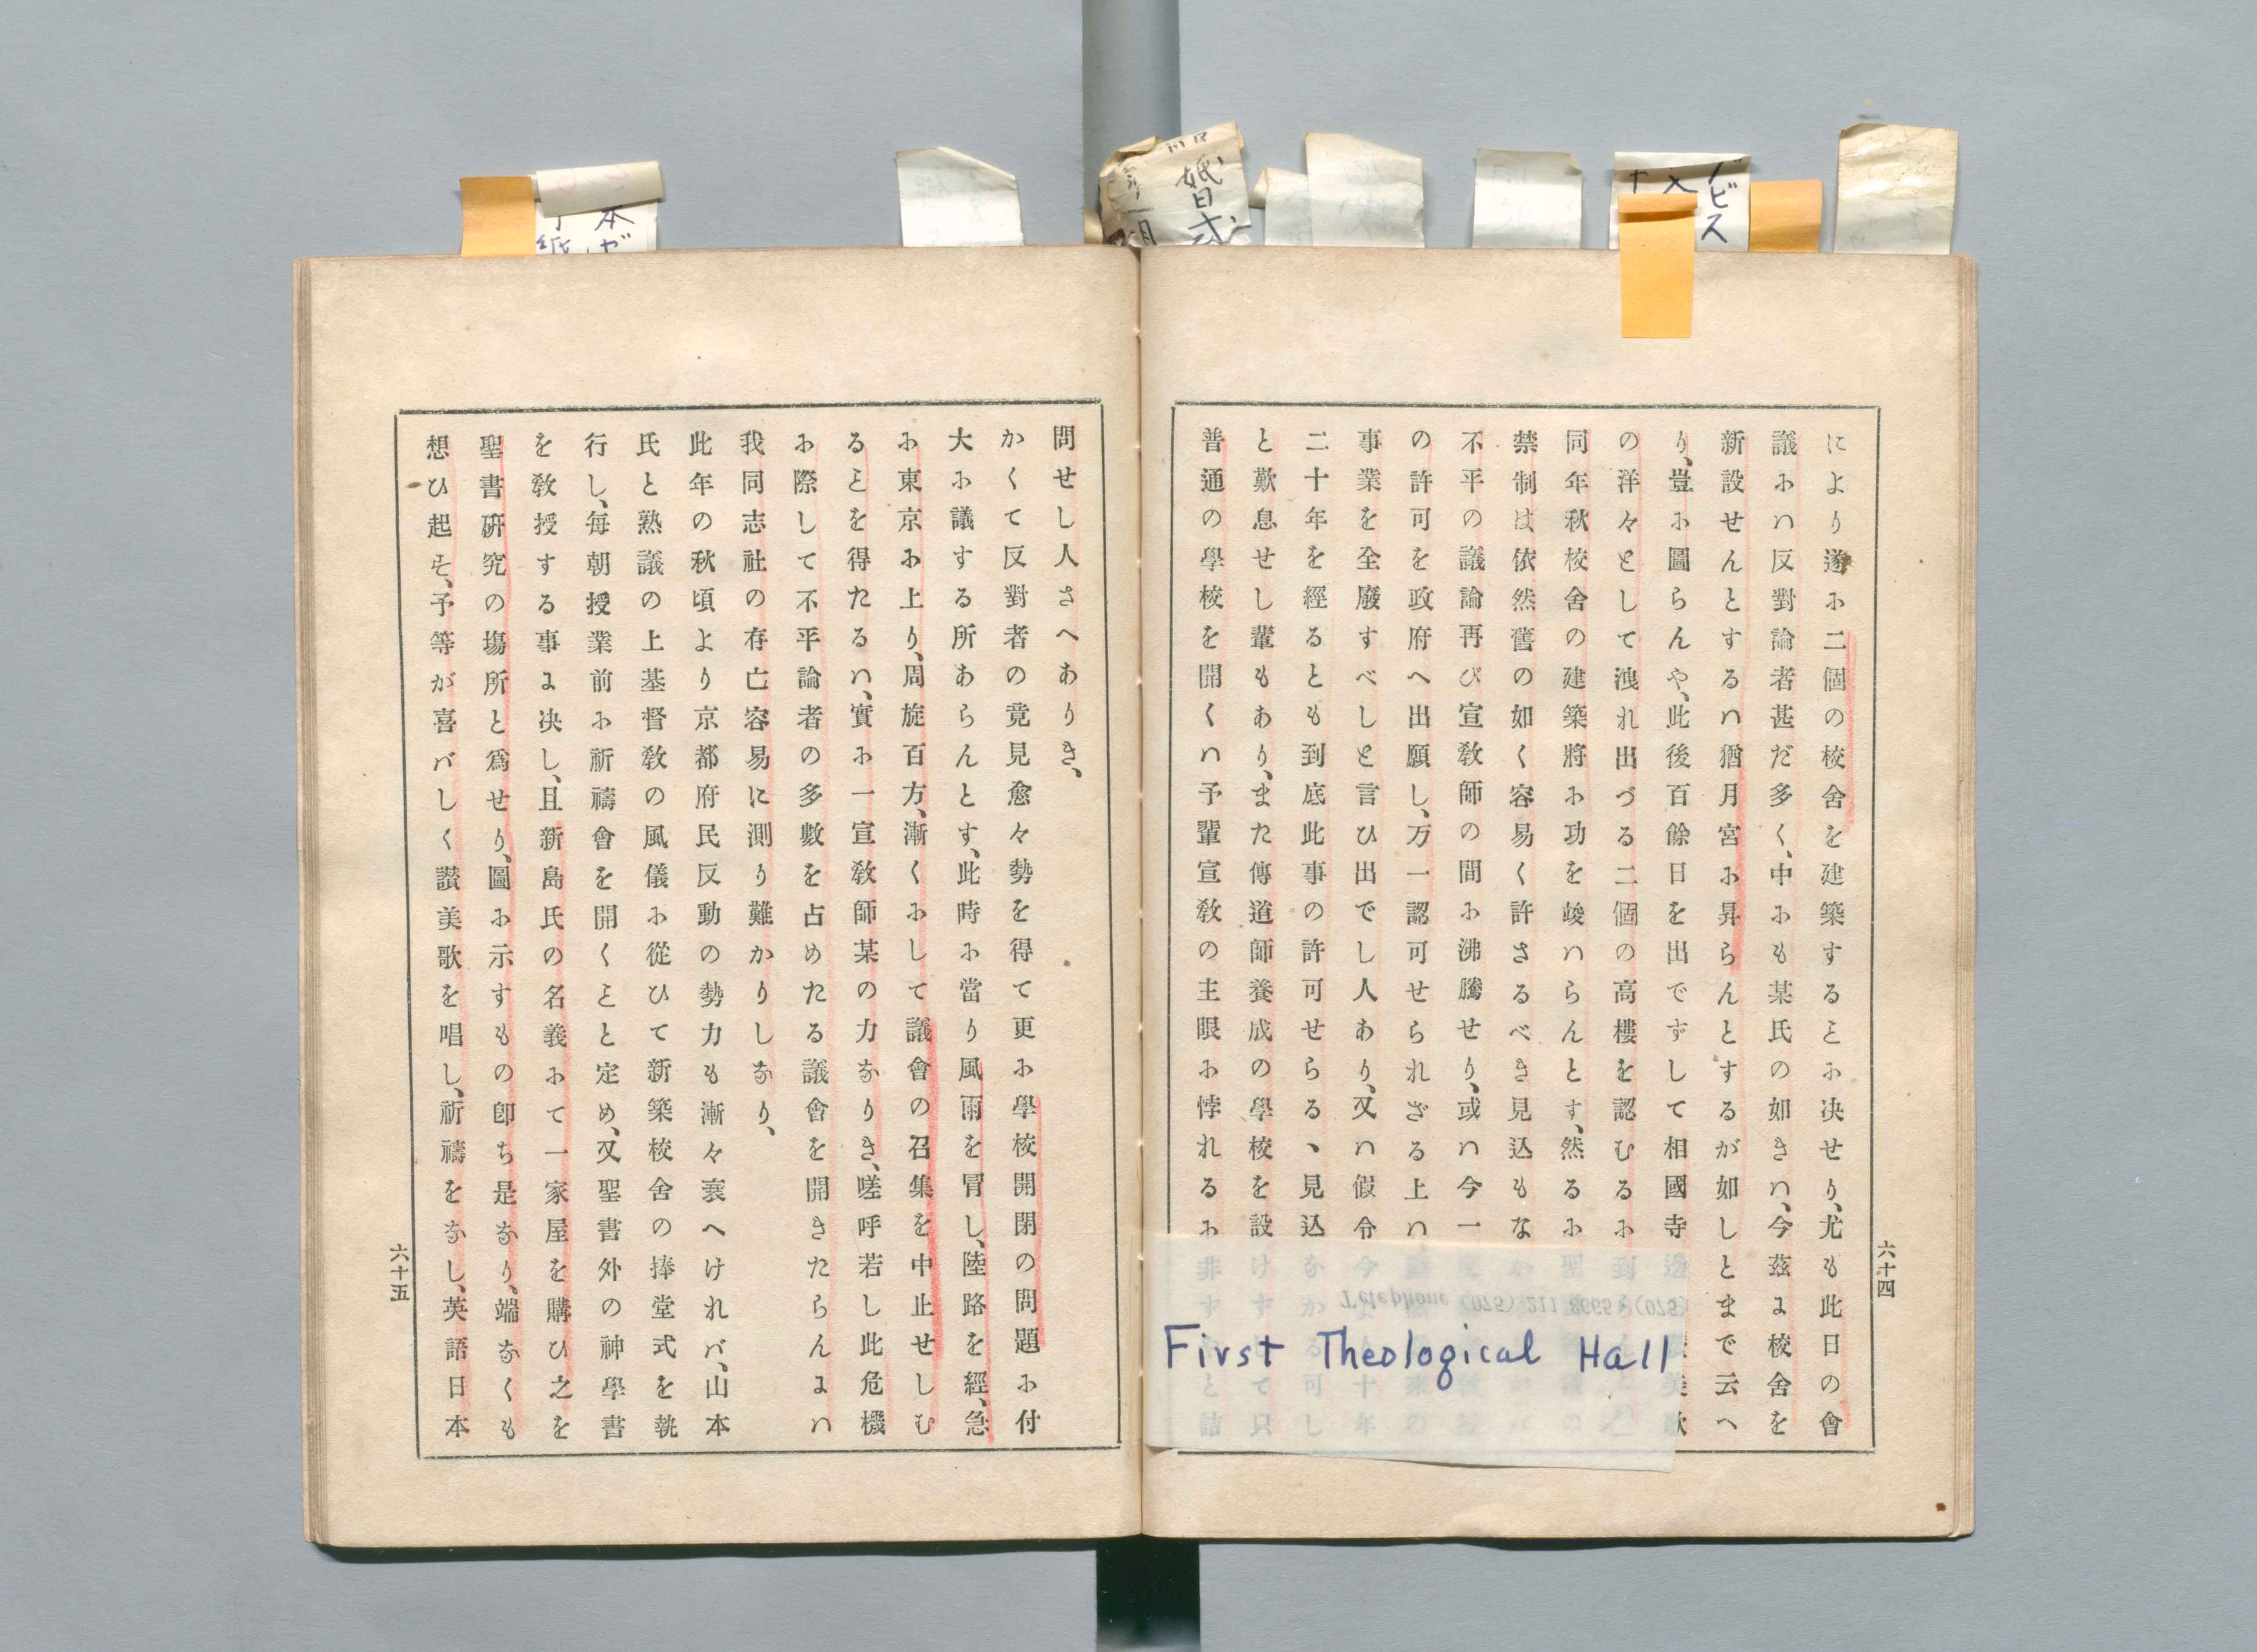 により遂に二個の校舍を建築することに决せり、尤も此日の會
議にハ反對論者甚だ多く、中にも某氏の如きハ、今茲に校舍を
新設せんとするハ猶月宮に昇らんとするが如しとまで云へ
り、豈に圖らんや、此後百餘日を出でずして相國寺
の洋々として洩れ出づる二個の高樓を認むるに
同年秋校舍の建築將に功を竣ハらんとす、然るに
禁制は依然舊の如く容易く許さるべき見込もな
不平の議論再び宣敎師の間に沸騰せり、或ハ今一
の許可を政府へ出願し、万一認可せられざる上ハ
事業を全廢すべしと言ひ出でし人あり、又ハ假令今
二十年を經るとも到底此事の許可せらるゝ見込なかる可し
と歎息せし輩もあり、また傳道師養成の學校を設けずして只
普通の學校を開くハ予輩宣敎の主眼に悖れるに非ず と詰
六十四
First Theological Hall
Telephone (075) 211 8665 (075)
問せし人さへありき、
かくて反對者の竟見愈々勢を得て更に學校開閉の問題に付
大に議する所あらんとす、此時に當り風雨を冐し、陸路を經、急
に東京に上り、周旋百方、漸くにして議會の召集を中止せしむ
ることを得たるハ、實に一宣敎師某の力なりき、嗟呼若し此危機
に際して不平論者の多數を占めたる議會を開きたらんにハ
我同志社の存亡容易に測り難かりしなり、
此年の秋頃より京都府民反動の勢力も漸々衰へけれバ、山本
氏と熟議の上基督敎の風儀に從ひて新築校舍の捧堂式を執
行し、每朝授業前に祈禱會を開くことと定め、又聖書外の神學書
を敎授する事に决し、且新島氏の名義にて一家屋を購ひ之を
聖書硏究の塲所と爲せり、圖に示すもの卽ち是なり、端なくも
想ひ起す、予等が喜バしく讃美歌を唱し、祈禱をなし、英語日本
六十五
婚
日
ビス